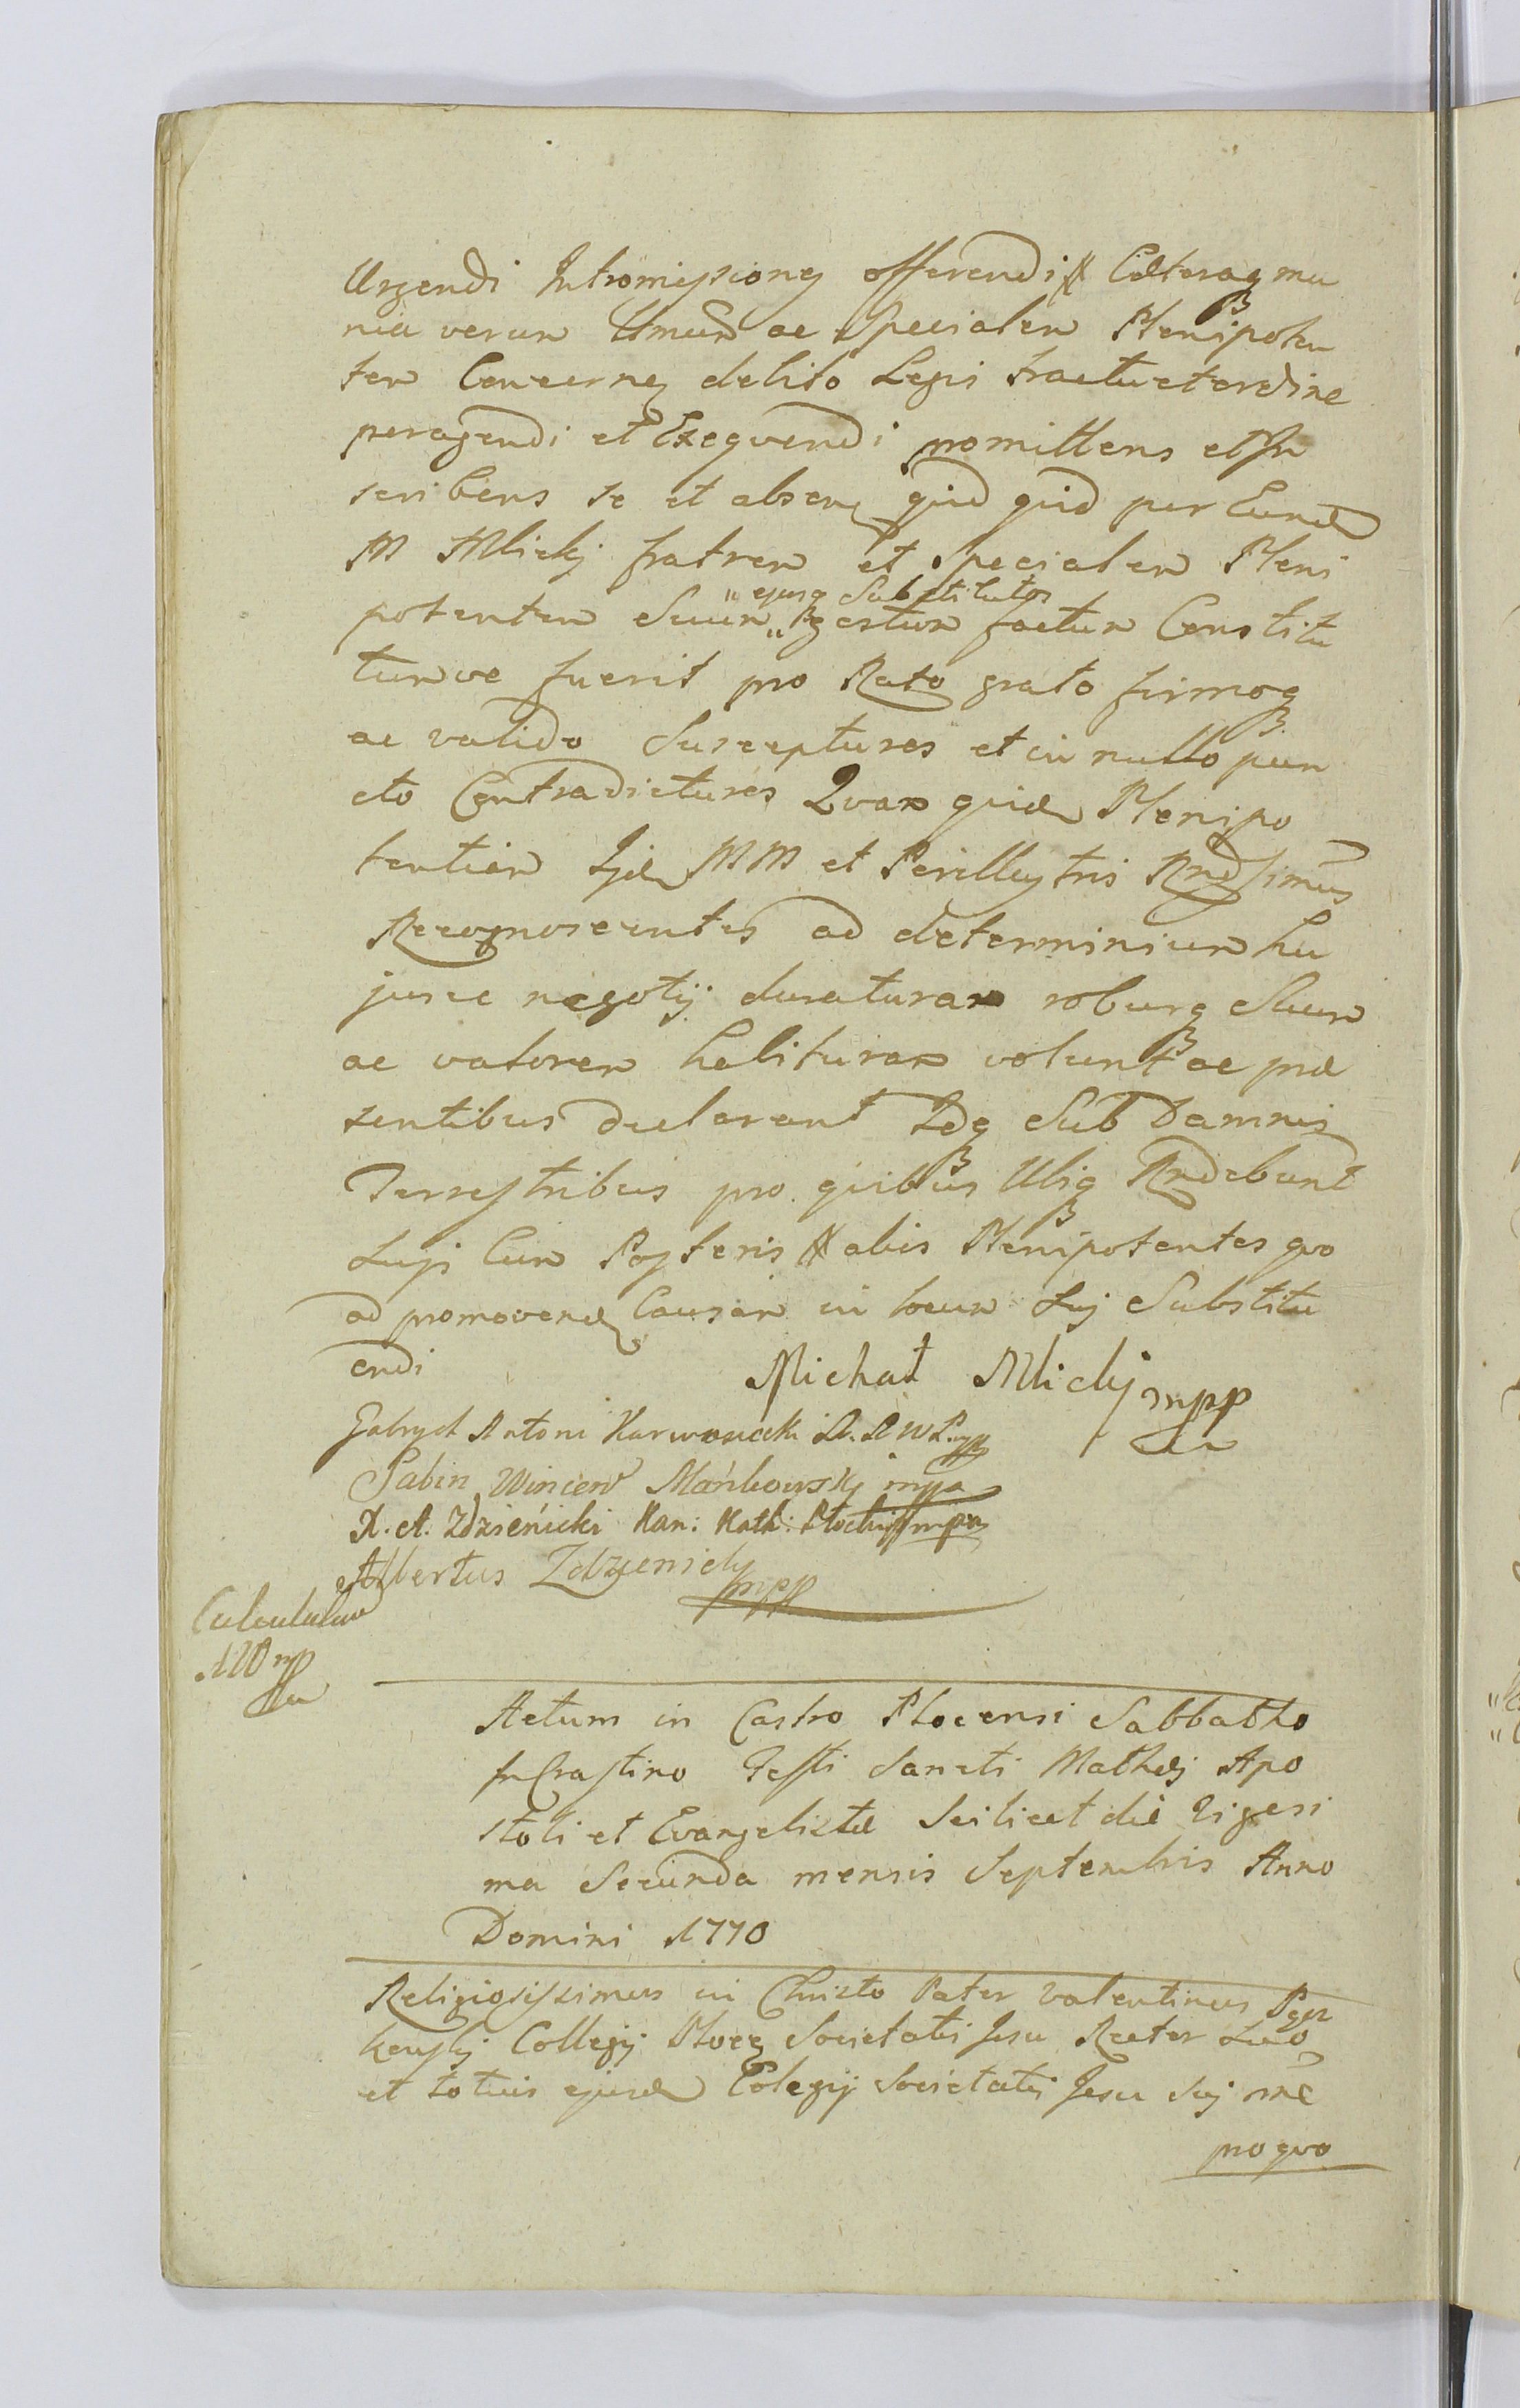 Urgendi Intromissiones offerendi & Cæteraq mu
nia verum Umum ac Specialem Plenipoten
tem Concernen debito Legis tractu et ordine
peragendi et Exeqvendi promittens et In
scribens se et absen quid quid per Eund
M Mlicky fratrem et Specialem Pleni
potentem Suum „ ejusq Substitutos „ gestum factum Constitu
tumve fuerit pro Rato grato firmoq
ac valido Suscepturos et in nullo pun
cto Contradicturos Qvam quid Plenipo
tentiam Iid MM et Perillustris Rndssimus
Recognoscentes ad determinium hu
jusce negotij duraturam roburq Suum
ac valorem habituram volunt ac præ
sentibus declarant Idq Sub Damnis
Terrestribus pro quibus Ubiq Rndebunt
Suis Cum Posteris & aliis Plenipotentes qvo
ad promovend Causam in locum Sui Substitu
endi
Michał Mlicky mpp
Gabryel Antoni Karwosiecki
Sabin Wincenty Mańkowsky mpp
X. A. Zdzieńicki Kan: Kath: Płocki mpp
Albertus Zdzienicky mpp
Calculatum
120 mp
Actum in Castro Plocensi Sabbatho
In Crastino Festi Sancti Mathæi Apo
stoli et Evangelistæ Scilicet die Vigesi
ma Secunda mensis Septembris Anno
Domini 1770
Religiosissimus in Christo Pater Valentinus
Collegij Plocen Societatis Jesu Rector Suo
et totius ejusd Colegij Societatis Jesu Sui nñe
pro qvo